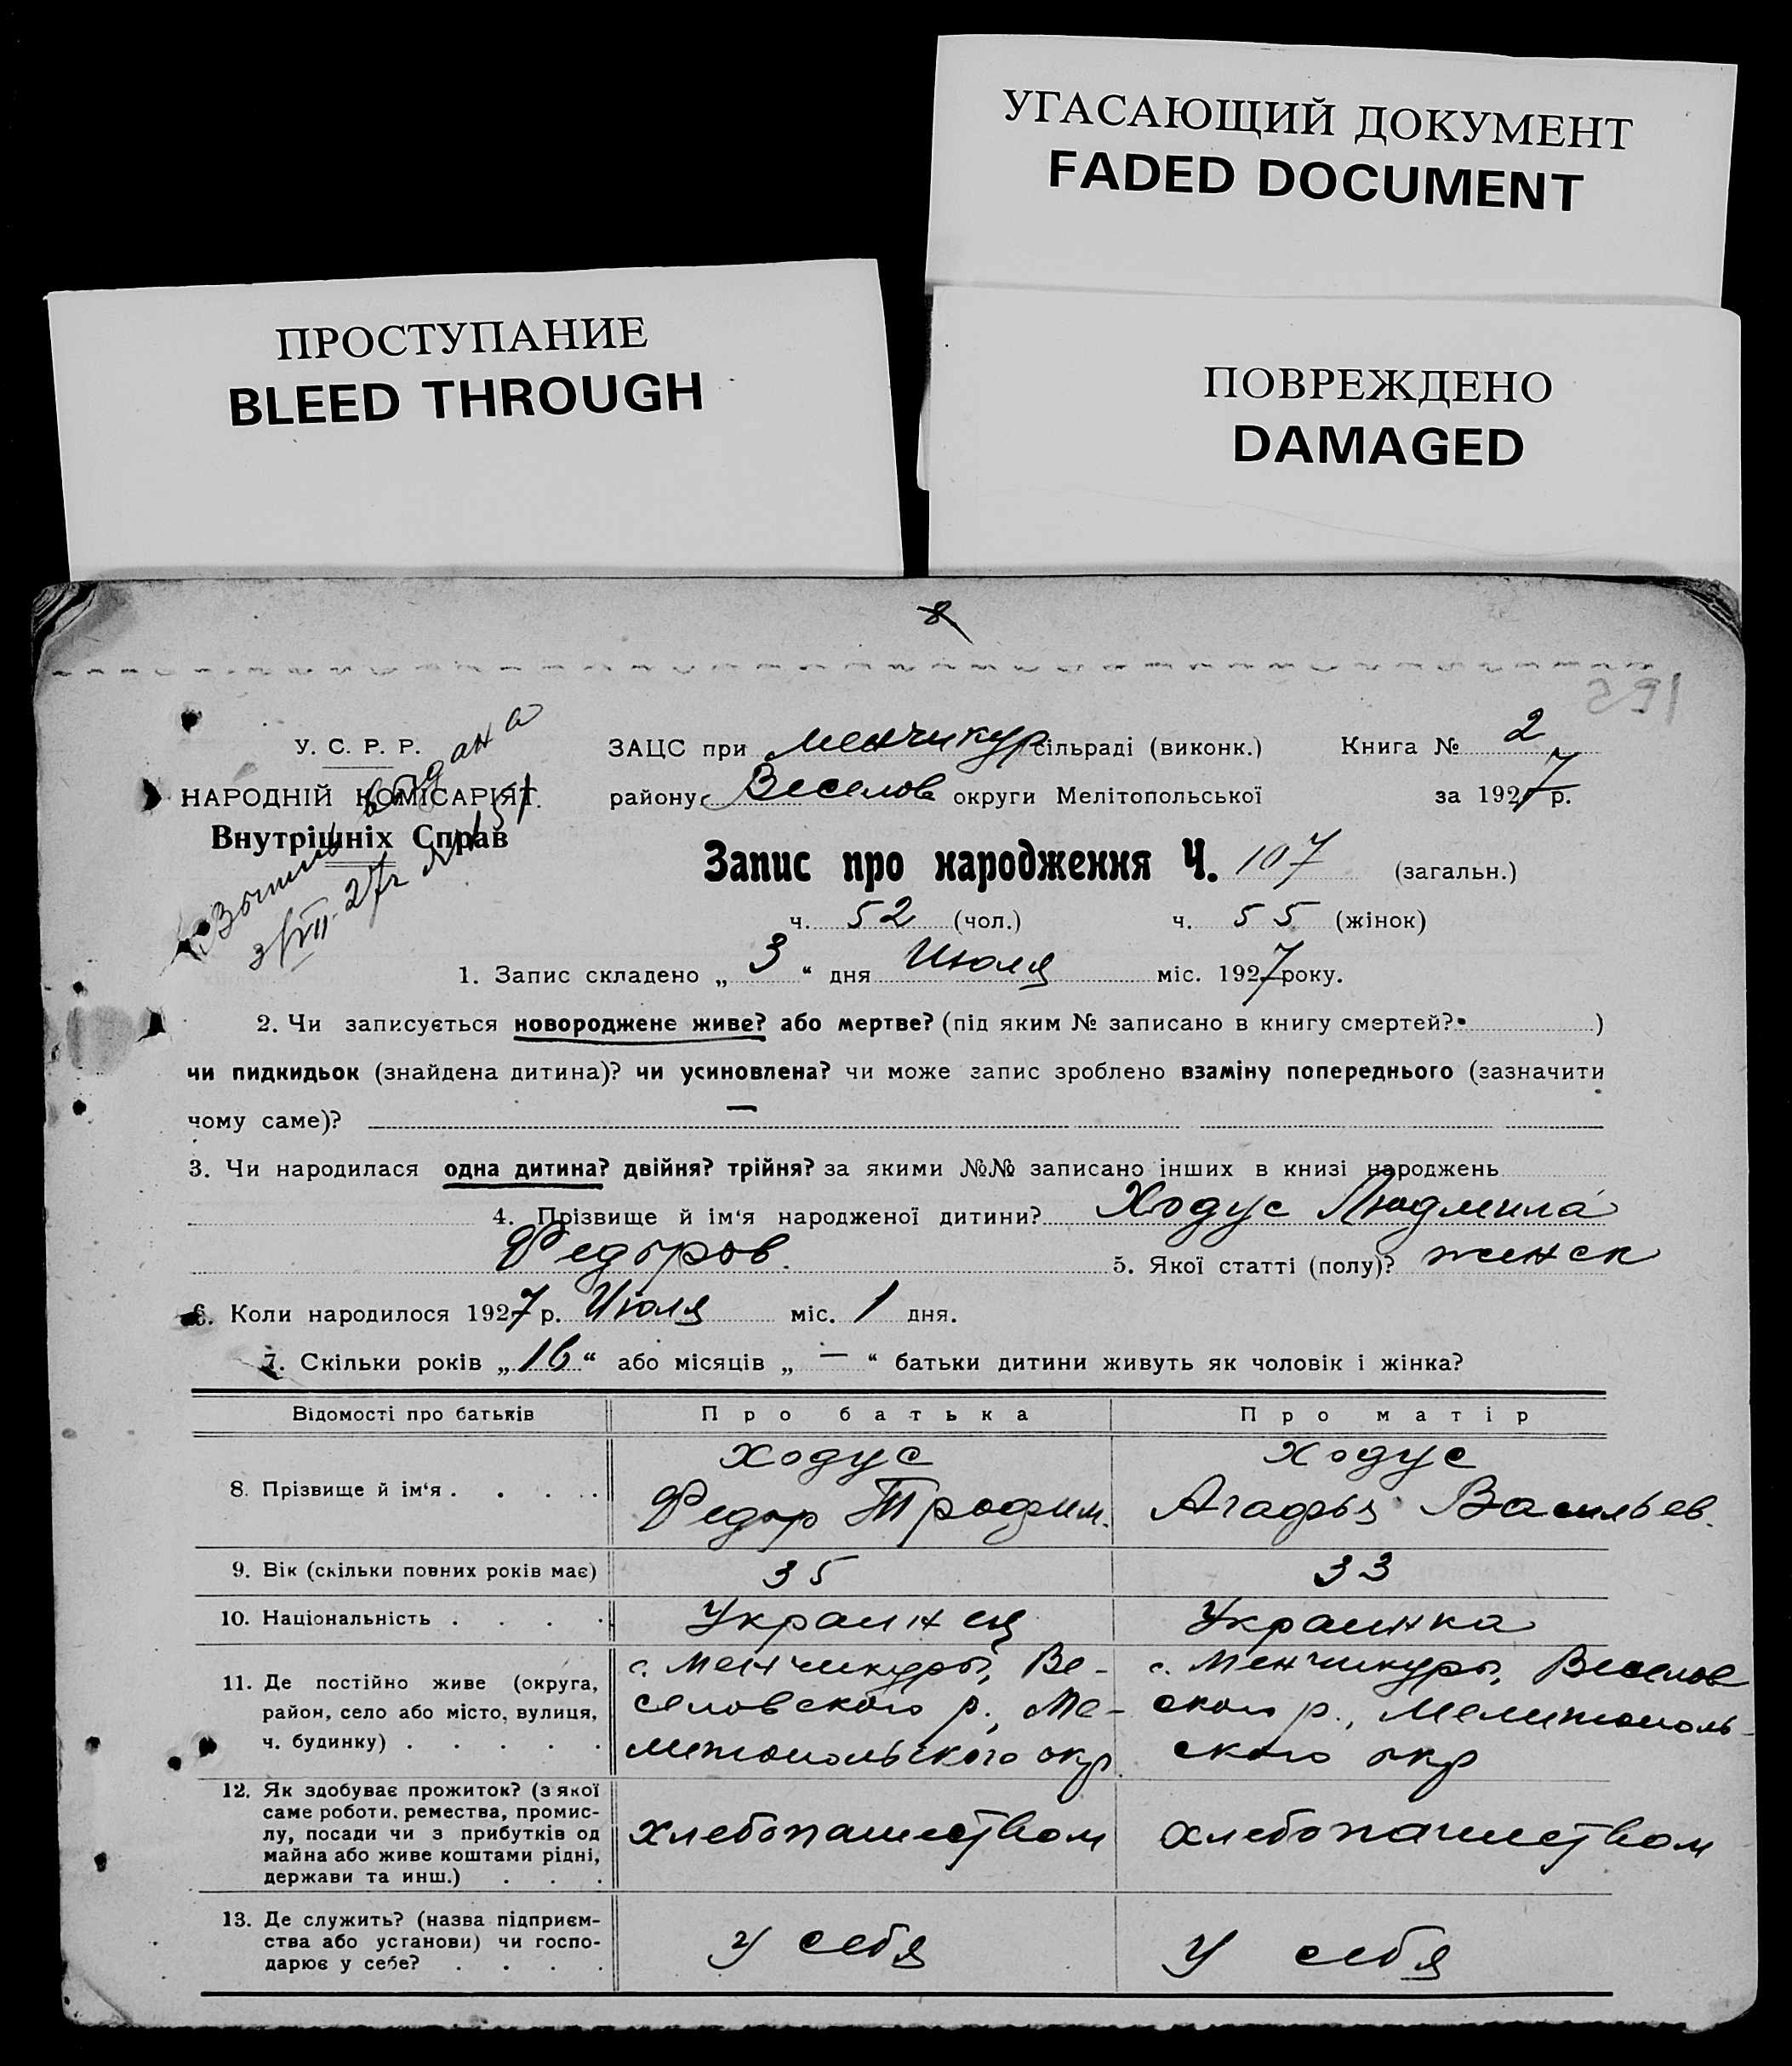 УГАСАЮЩИЙ ДОКУМЕНТ
FADED DOCUMENT
ПРОСТУПАНИЕ
BLEED THROUGH
ПОВРЕЖДЕНО
DAMAGED
8
У. С. Р. Р.
НАРОДНІЙ КОМІСАРІЯТ.
Внутрішніх Справ
Выпись выдана
3/VII-27г № 151
ЗАЦС при Менчикур сільраді (виконк.) Книга № 2
району Веселов округи Мелітопольської за 1927 р.
Запис про народження Ч. 107 (загальн.)
ч. 52 (чол.) ч. 55 (жінок)
1. Запис складено „ 3 “ дня Июля міс. 1927 року.
2. Чи записується новороджене живе? або мертве? (під яким № записано в книгу смертей? )
чи пидкидьок (знайдена дитина)? чи усиновлена? чи може запис зроблено взаміну попереднього (зазначити
чому саме)? —
3. Чи народилася одна дитина? двійня? трійня? за якими №№ записано інших в книзі народжень
4. Прізвище й ім‘я народженої дитини? Ходус Людмила
Федоров. 5. Якої статті (полу)? женск
6. Коли народилося 1927 р. Июля міс. 1 дня.
7. Скільки років „ 16 “ або місяців „ — “ батьки дитини живуть як чоловік і жінка?
Відомості про батьків Про батька Про матір
8. Прізвище й ім‘я . . . . . Ходус Федор Трофим. Ходус Агафья Васильев.
9. Вік (скільки повних років має) 35 33
10. Національність . . . . Украинец Украинка
11. Де постійно живе (округа,
район, село або місто, вулиця,
ч. будинку) . . . . .
с. Менчикуры, Ве-
селовского р., Ме-
литопольского окр.
с. Менчикуры, Веселов
ского р., Мелитополь-
ского окр
12. Як здобуває прожиток? (з якої
саме роботи, ремества, промис-
лу, посади чи з прибутків од
майна або живе коштами рідні,
держави та инш.) . . .
хлебопашеством хлебопашеством
13. Де служить? (назва підприєм-
ства або установи) чи госпо-
дарює у себе? . . . .
У себя У себя